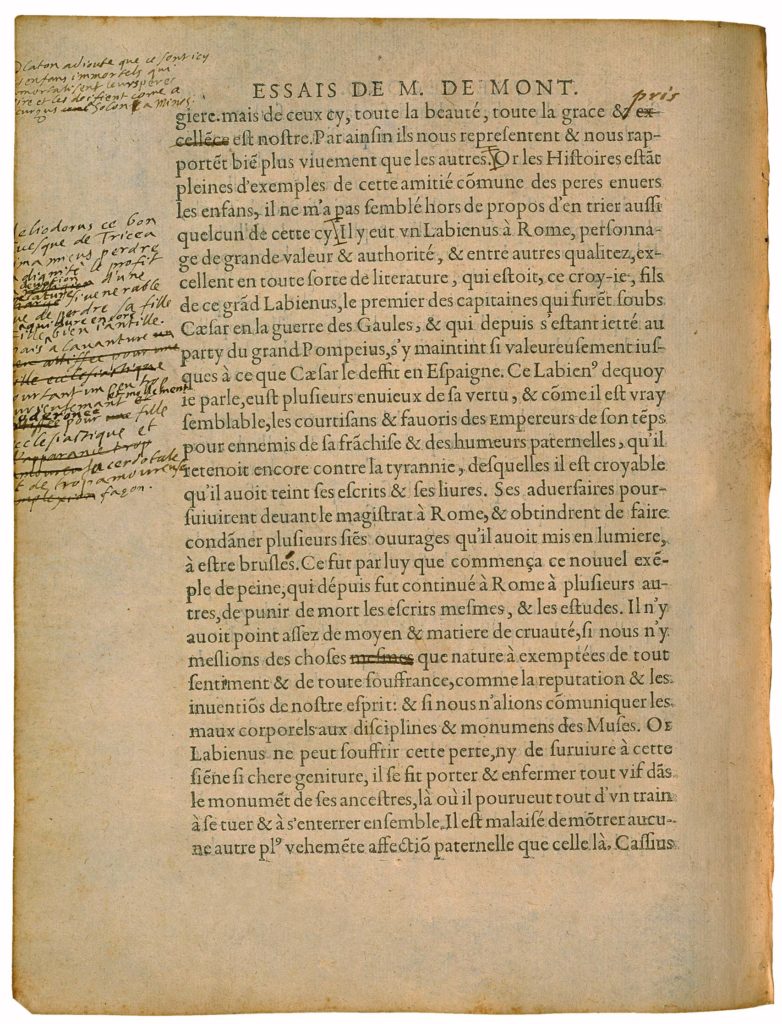 Platon adioute que ce sont icy
enfans immortels qui
immortalisent leurs peres
et les deifient come a
Solon a Minos.
ESSAIS DE M. DE MONT.
pris
giere.mais de ceux cy, toute la beauté, toute la grace & ex-
cellēce est nostre.Par ainsin ils nous representent & nous rap-
portēt biē plus viuement que les autres. Or les Histoires estāt
pleines d'exemples de cette amitié cōmune des peres enuers
les enfans, il ne m'a pas semblé hors de propos d'en trier aussi
quelcun de cette cy. Il y eut vn Labienus à Rome, personna-
ge de grande valeur & authorité, & entre autres qualitez, ex-
cellent en toute sorte de literature, qui estoit, ce croy-ie, fils
de ce grād Labienus, le premier des capitaines qui furēt soubs
Cæsar en la guerre des Gaules, & qui depuis s'estant ietté au
party du grand Pompeius, s'y maintint si valeureusement ius-
ques à ce que Cæsar le deffit en Espaigne. Ce Labienꝰ dequoy
ie parle, eust plusieurs enuieux de sa vertu, & cōme il est vray
semblable, les courtisans & fauoris des Empereurs de son tēps
pour ennemis de sa frāchise & des humeurs paternelles, qu'il
retenoit encore contre la tyrannie, desquelles il est croyable
qu'il auoit teint ses escrits & ses liures. Ses aduersaires pour-
suiuirent deuant le magistrat à Rome, & obtindrent de faire
condāner plusieurs siēs ouurages qu'il auoit mis en lumiere,
à estre bruslés. Ce fut par luy que commença ce nouuel exē-
ple de peine, qui dépuis fut continué à Rome à plusieurs au-
tres, de punir de mort les escrits mesmes, & les estudes. Il n'y
auoit point assez de moyen & matiere de cruauté, si nous n'y
meslions des choses mesmes que nature à exemptées de tout
sentiment & de toute souffrance, comme la reputation & les
inuentiōs de nostre esprit: & si nous n'alions cōmuniquer les
maux corporels aux disciplines & monumens des Muses. Or
Labienus ne peut souffrir cette perte, ny de suruiure à cette
siēne si chere geniture, il se fit porter & enfermer tout vif dās
le monumēt de ses ancestres, là où il pourueut tout d'vn train
à se tuer & à s'enterrer ensemble. Il est malaisé de mōtrer aucu-
ne autre plꝰ vehemēte affectiō paternelle que celle là. Cassius
Heliodorus ce bon
euesque de Tricea
aima mieus perdre
la dignité le profit
d'une
si venerable
que de perdre sa fille
fille
bien iantille.
mais a l'auanture
pourtant un peu trop
et mollement
pour fille
ecclesiastique et
sacerdotale
et de trop amoureuse
façon.